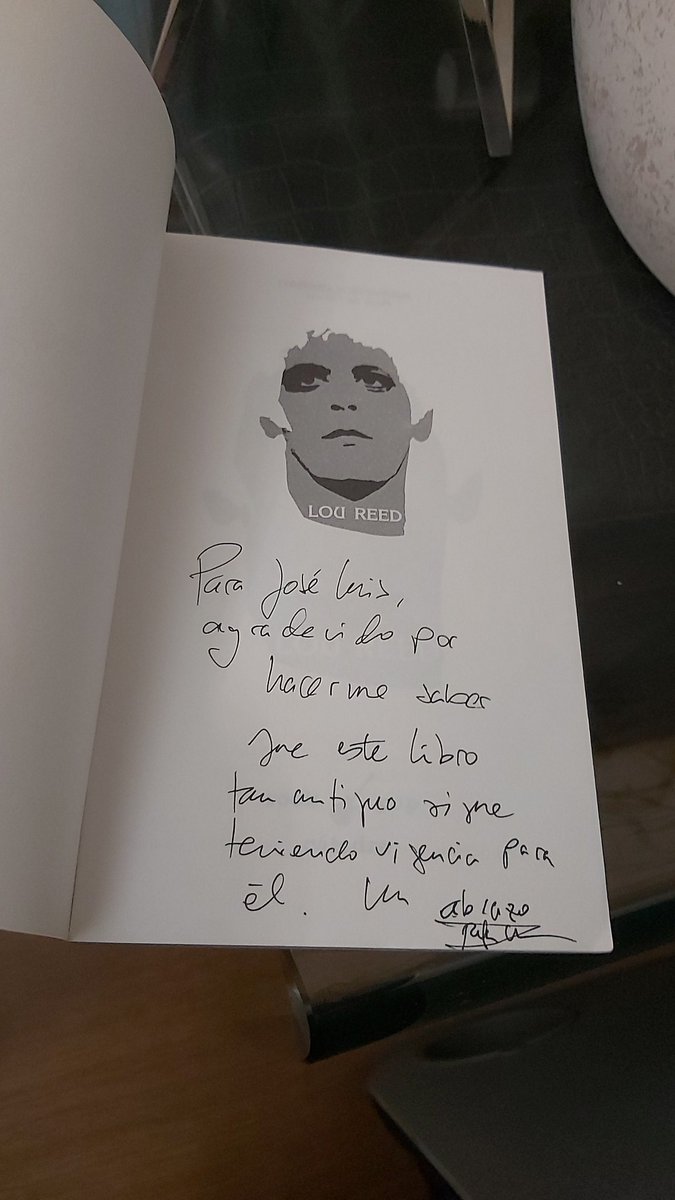 LOU REED
Para José Luis,
agradecido por
hacerme saber
que este libro
tan antiguo sigue
teniendo vigencia para
él. Un abrazo